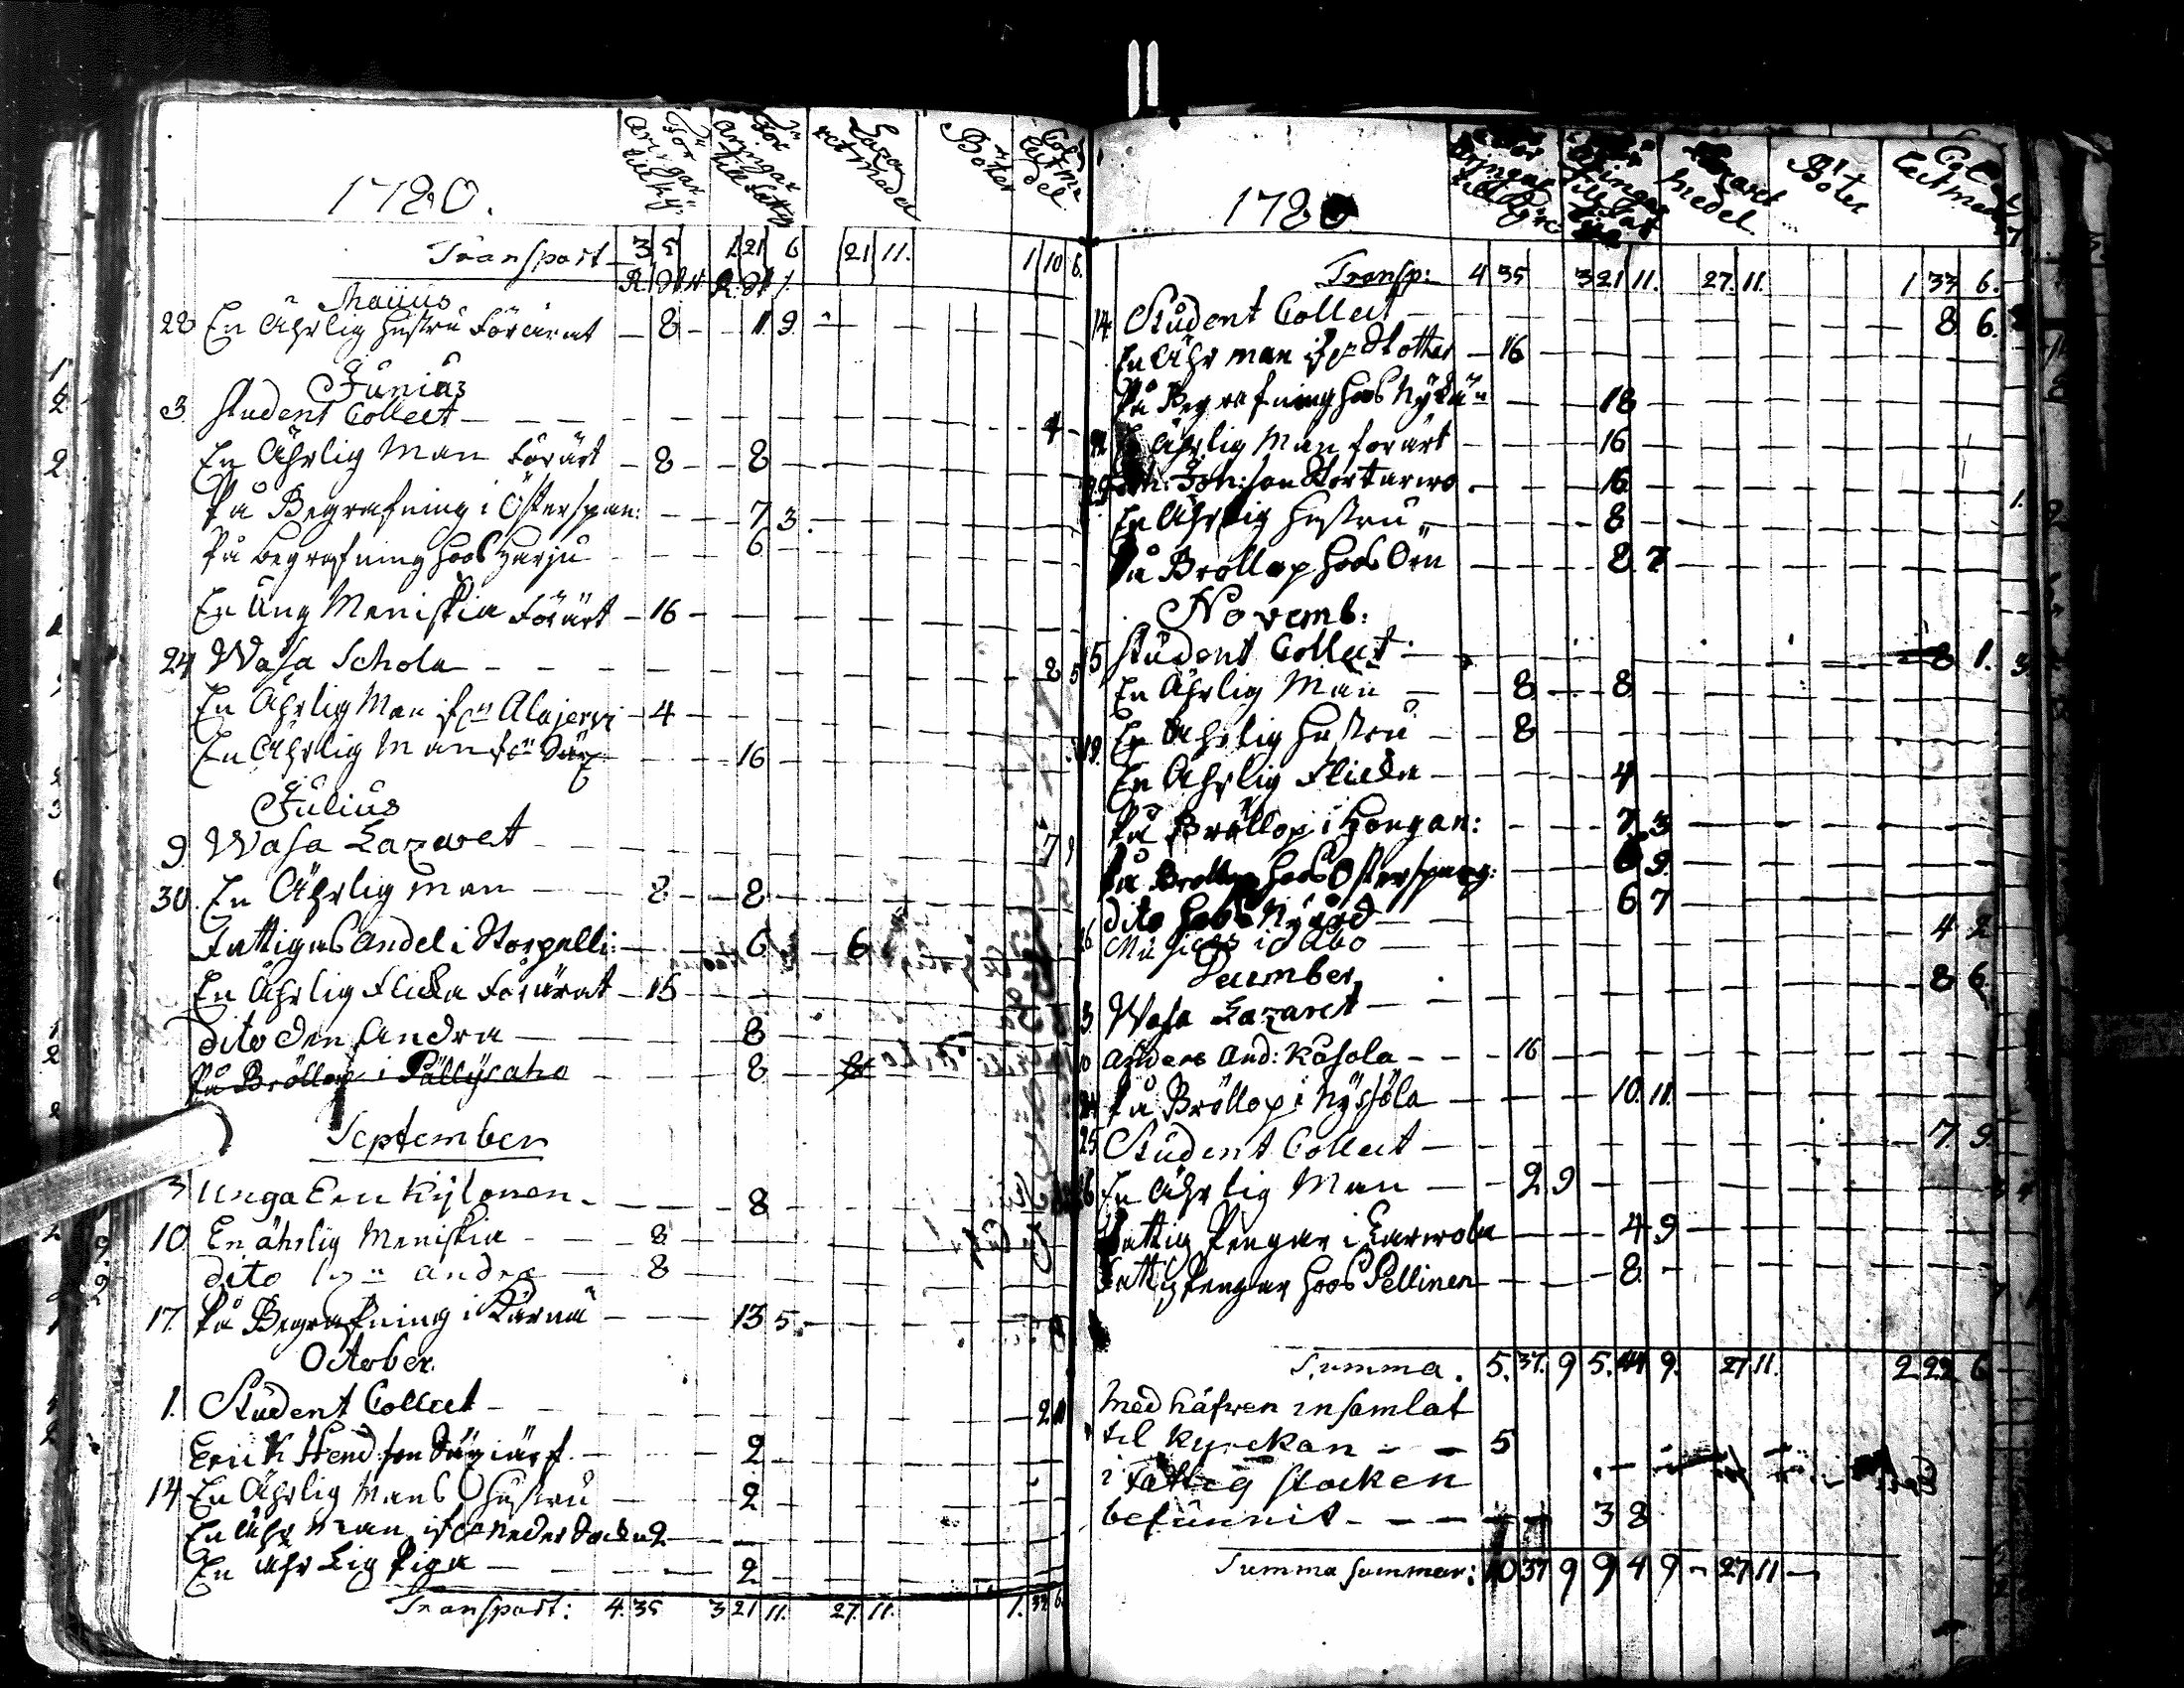 1780.
Föräringar till Ky:
Föräringar till fattig
Lazaret Medel
Böter
Collect Medel
Transport 3 5 1 21 6 21 11. 1 10 6.
Maius
28 En Ährlig Hustru Förärat — 8 — 11 9.
Junius
3. Student Collect — 4 —
En Ährlig Man Förärt — 8 — 8 —
På Begrafning i Österspan: — 7 3.
På begrafning hoos Harju — 6 —
En Ung Meniskia Förärt — 16 —
24 Wasa Schola — 8 5
En Ährlig Man ifrån Alajervi — 4 —
En Ährlig Man från — 16 —
Julius
9 Wasa Lazaret — 7 9
30. En Ährlig man — 8 — 8 —
Fattigas Andel i Storpelli: — 6 — 6
En Ährlig Flicka Förärat — 16 —
Dito den Andra — 8 —
På Bröllop i Pöllysaho — 8 —
September
3 Unga Eric Kylönen — 8
10 En ährlig Meniskia — 8 —
dito andra — 8 —
17. På Begrafning i Kärnä — 13 5. —
October
1. Student Collect — 2 11
Erik Hend:son — 2 —
14 En Ährlig Mans Hustru — 2 —
En Ähr man ifrån Neder 2 —
En ährlig Piga — 2 —
Transport: 4. 35 3 21 11. 27. 11. 1. 33 6
1780
till Kyrc
till fat
Lazaret Medel
Böter
Collect Medel
Transp: 4 35 3 21 11. 27. 11. 1 33 6.
14. Student Collect — 8 6.
En Ähr man ifrån — 16 —
På Begrafning hoos Nykä — 18 —
Ährlig Man forärt — 16 —
29 Joh:son Stortarwo. — 16 —
En Ährlig Hustru — 8 —
På Bröllop hoos Örn — 8. 7 —
Novemb:
5 Student Collect — 8 1.
En Ährlig Man — 8 — 8 —
19. En Ährlig Hustru — 8 —
En Ährlig Flicka — 4 —
På Bröllop i Hongan: — 7. 3 —
På Bröllop hoos Österspang: — 6 9. —
dito hoos Nygård — 6 7
26 i Åbo — 4 2
December
3. Wasa Lazaret — 8 6.
10 Anders And: Kåsola — 16 —
24 På Bröllop i Nysjöla — 10. 11. —
25 Student Collect — 7 9.
26 En Ährlig Man — 2 9 —
Fattig Pengar i Karwola — 4 9 —
Fattigpengar hoos Pellinen — 8. —
Summa. 5. 37. 9 5. 44 9. 27 11. 2 22 6
Med håfwen insamlat
til Kyrckan — 5
i Fattig stocken
befunnit — 3 8
Summa summar: 10 37 9 9 4 9 — 27 11 —